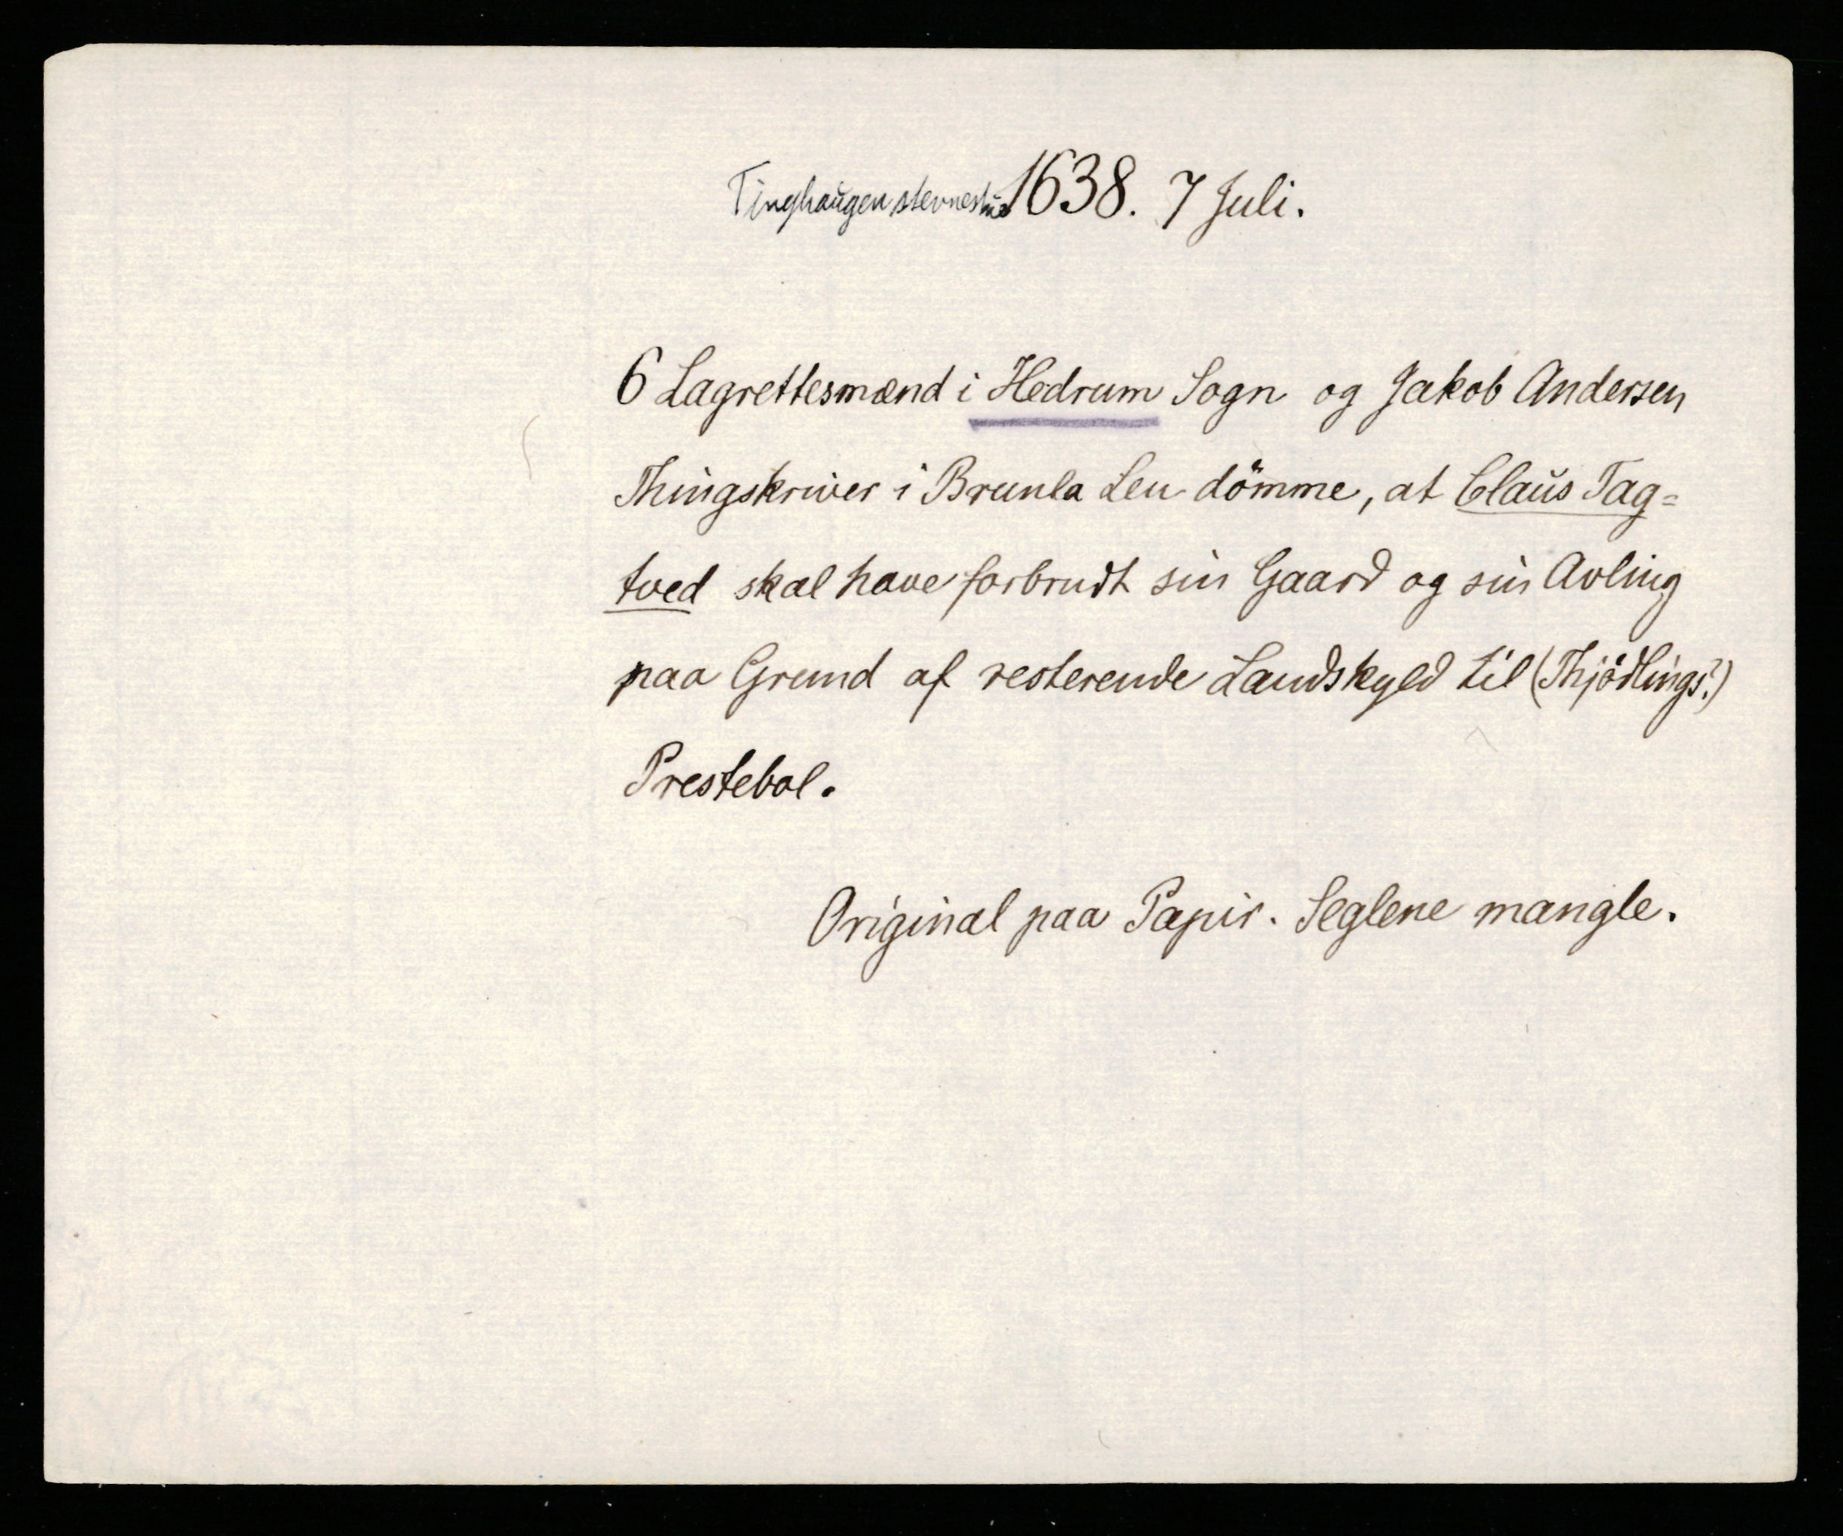 Tinghaugen stevnestue 1638. 7 Juli.
6 Lagrettesmænd i Hedrum Sogn og Jakob Andersen
Thingskriver i Brunla Len dömme, at Claus Tag=
tved skal have forbrudt sin Gaard og sin Avling
paa Grund af resterende Landskyld til (Thjödlings?)
Prestebol.
Original paa Papir. Seglene mangle.